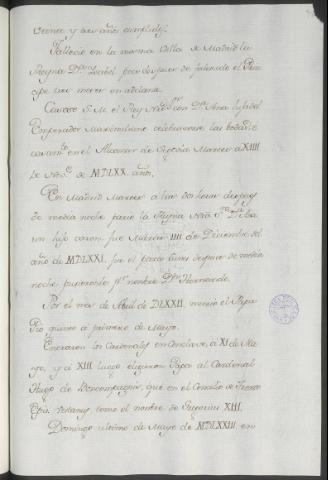 veinte y tres años cumplidos.
Fallecio en la misma Villa de Madrid la
Reyna Dª. Isabel poco despues de fallecido el Prin
cipe un mes en adelante.
Casose S. M. el Rey Nrô. Sºr con Dª. Ana hija del
Emperador Maximiliano celebraronse las bodas
en el Alcazar de Segovia Martes a XIIII
de Nov.e de MDLXX. años.
En Madrid Martes a las dos horas despues
de media noche pario la Reyna Nrâ S.ra Dª. Ana
un hijo varon fue Martes IIII de Diciembre del
año de MDLXXI, fue el parto dos horas despues de media
noche pusieronle por nombre Dn. Hernando.
Por el mes de Abril de DLXXII, murio el Papa
Pio quinto a primero de Mayo.
Entraron los Cardenales en Conclave, a XI de Ma
yo, y a XIII luego eligieron Papa al Cardenal
Hugo de Boncompagnis, que en el Concilio de Trento
tomo el nombre de Gregorius XIII.
Domingo ultimo de Mayo de MDLXXIII en